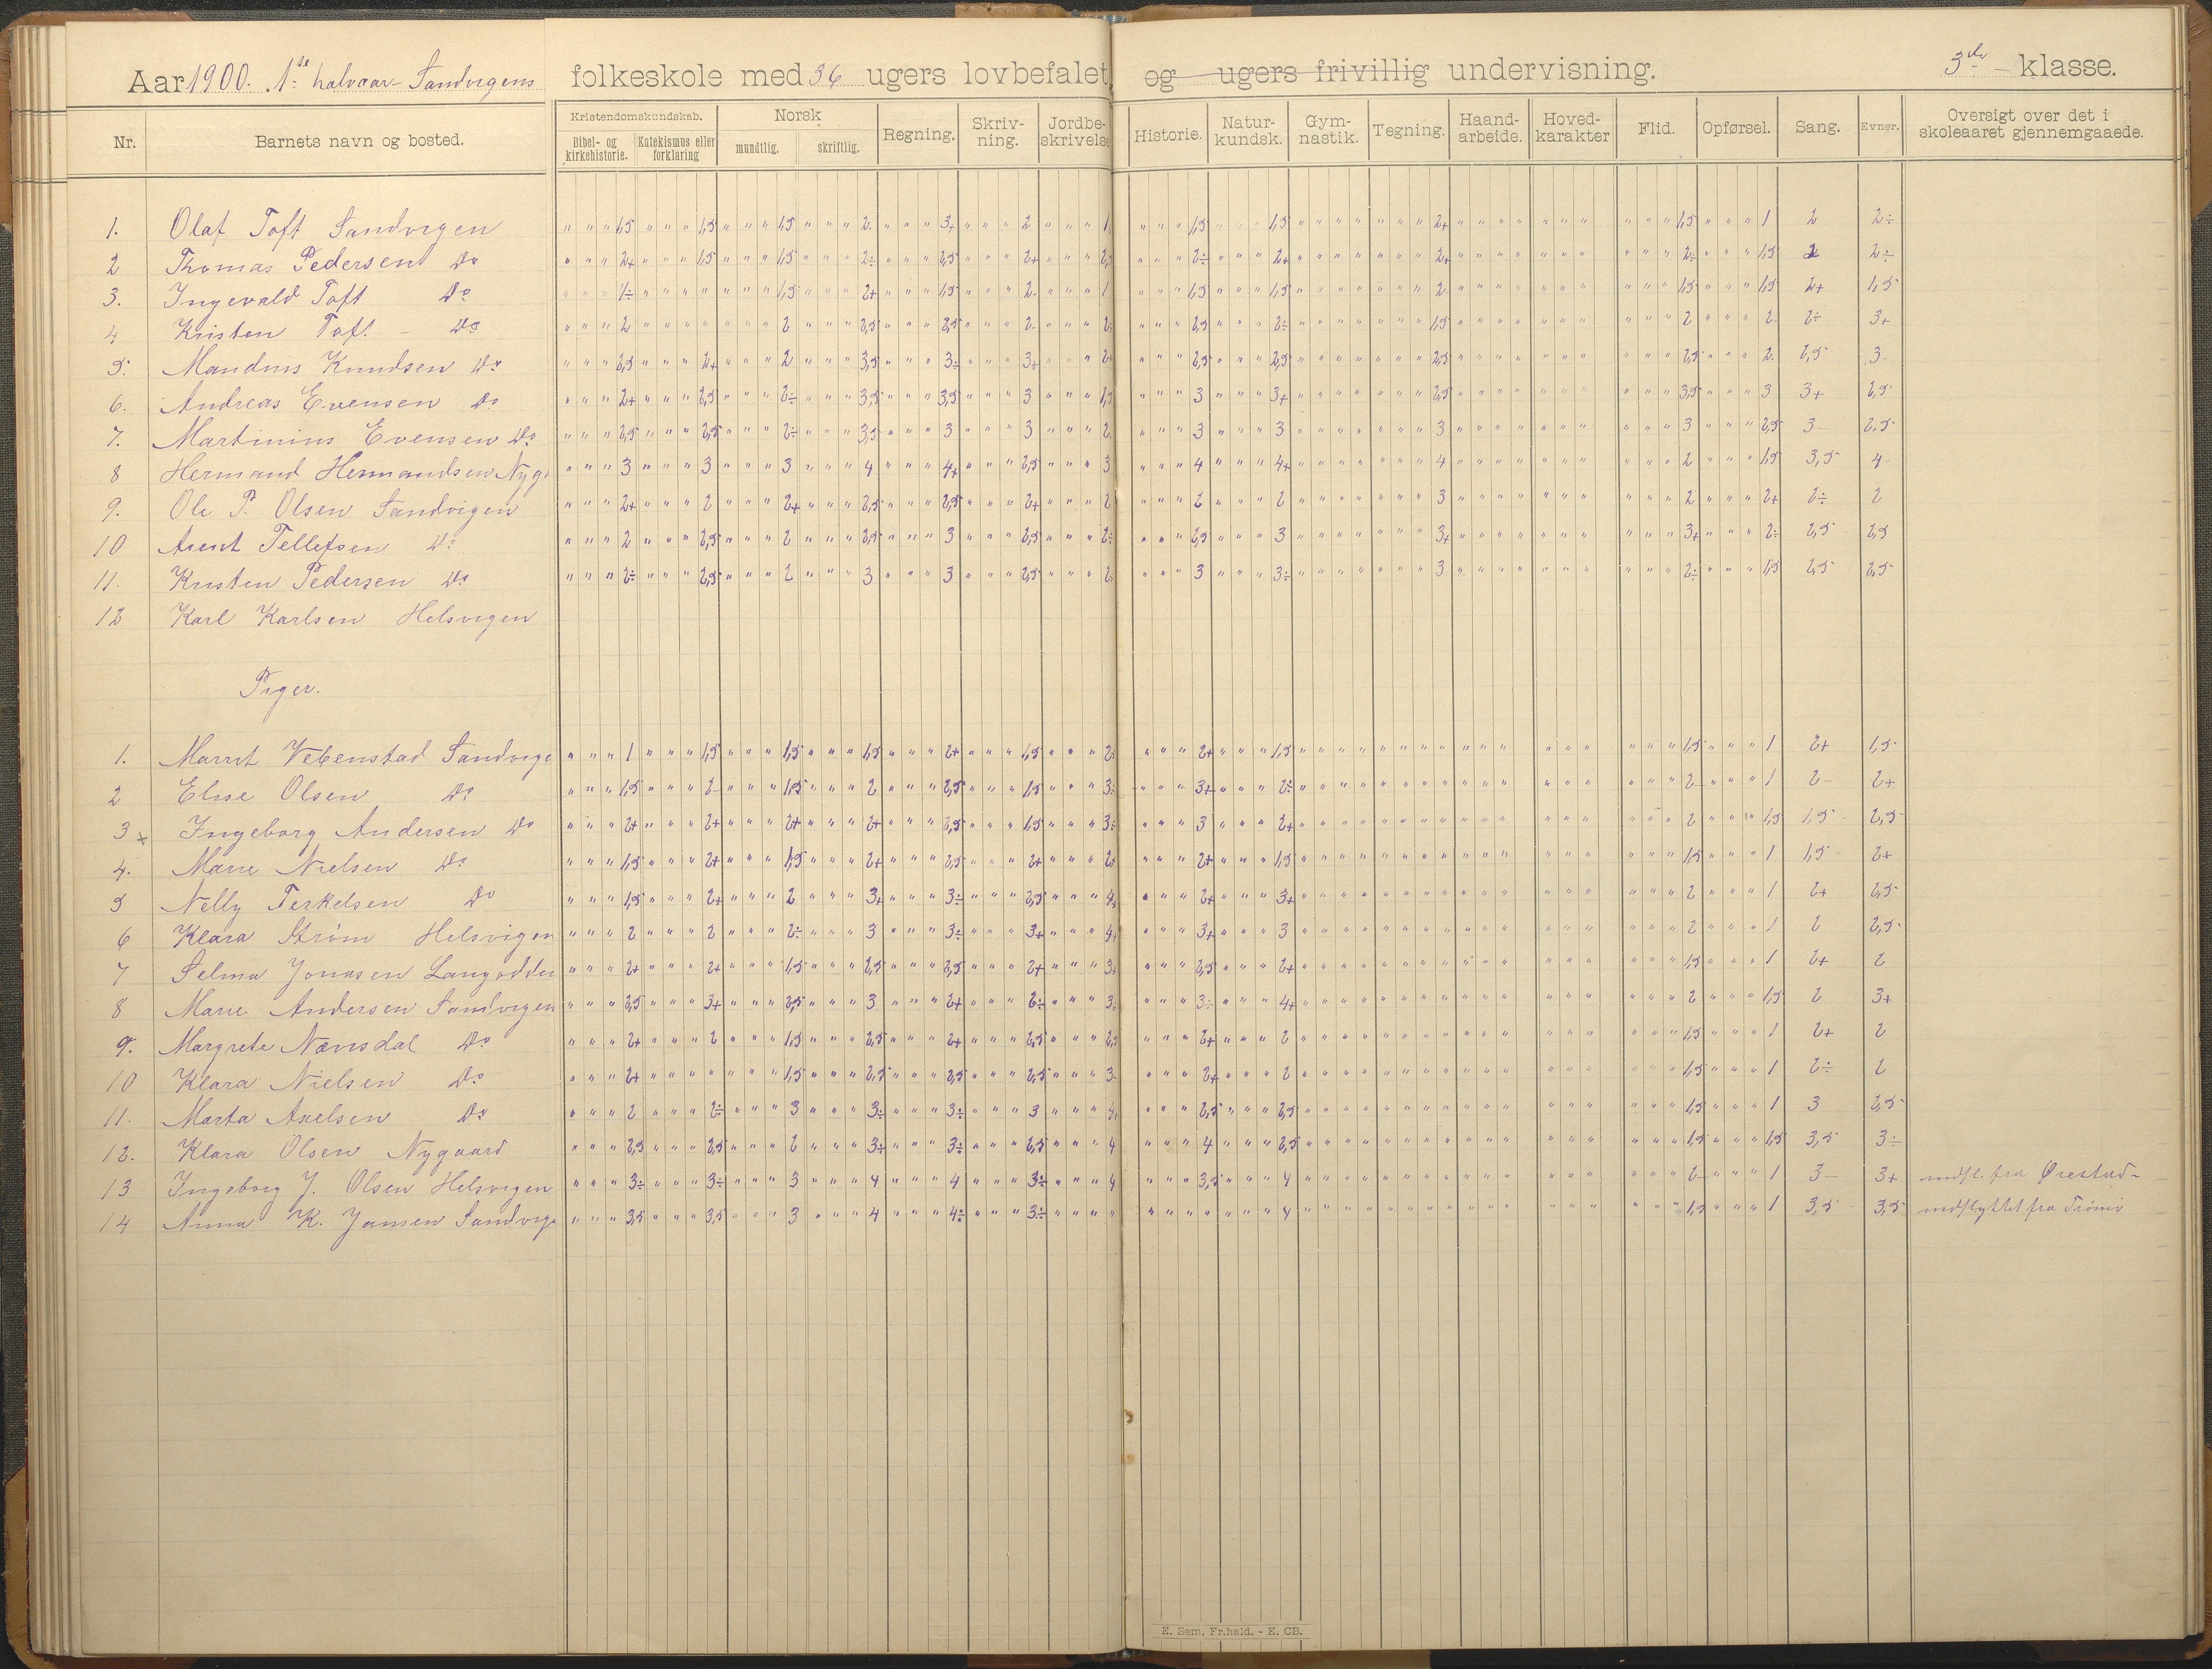 Aar 1900. 1ste halvaar Sandvigens folkeskole med 36 ugers lovbefalet og ugers frivillig undervisning. 3die klasse.
Nr. Barnets navn og bosted. Kristendomskundskab. Bibel- og kirkehistorie. Katekismus eller forklaring Norsk mundtlig. skriftlig. Regning. Skriv-ning. Jordbe-skrivelse Historie. Natur-kundsk. Gym-nastik. Tegning. Haand-arbeide. Hoved-karakter Flid. Opførsel. Sang. Evner. Oversigt over det i skoleaaret gjennemgaaede.
1. Olaf Toft Sandvigen 1,5 1,5 1,5 2 3+ 2 1 1,5 1,5 2+ 1,5 1 2 2÷
2 Thomas Pedersen Do 2+ 1,5 1,5 2÷ 2,5 2+ 2÷ 2+ 2+ 2÷ 1,5 2 2÷
3. Ingevald Toft Do 1÷ " 1,5 2+ 1,5 2 1 1,5 1,5 2 1,5 1,5 2+ 1,5
4 Kristen Toft - Do 2 " 2 2,5 2,5 2 2 2,5 2÷ 1,5 2 2 2÷ 3+
5. Mandius Knudsen Do 2,5 2+ 2 3,5 3÷ 3+ 2+ 2,5 2,5 2,5 2,5 2 2,5 3
6. Andreas Evensen Do 2+ 2,5 2÷ 3,5 3,5 3 1,5 3 3+ 2,5 3,5 3 3+ 2,5
7. Martinius Evensen Do 2,5 2,5 2÷ 3,5 3 3 2 3 3 3 3 2,5 3 2,5
8 Hermand Hermandsen Nyg 3 3 3 4 4+ 2,5 3 4 4+ 4 2 1,5 3,5 4
9. Ole P. Olsen Sandvigen 2+ 2 2+ 2,5 2,5 2+ 2 2 2 3 2 2+ 2÷ 2
10 Arent Tellefsen Do 2 2,5 2 2,5 3 2,5 2÷ 2,5 3 3+ 3+ 2÷ 2,5 2,5
11. Kristen Pedersen Do 2÷ 2,5 2 3 3 2,5 2 3 3÷ 3 2÷ 1,5 2,5 2,5
12 Karl Karlsen Helsvigen
Piger.
1. Marrit Vebenstad Sandvige 1 1,5 1,5 1,5 2+ 1,5 2+ 2+ 1,5 1,5 1 2+ 1,5
2 Elise Olsen Do 1,5 2 1,5 2 2,5 1,5 3÷ 3+ 2÷ 2 1 2 2+
3 x Ingeborg Andersen Do 2+ 2+ 2+ 2+ 2,5 1,5 3÷ 3 2+ 2 1,5 1,5 2,5
4. Marie Nielsen Do 1,5 2+ 1,5 2+ 2,5 2+ 2+ 2+ 1,5 1,5 1 1,5 2+
5 Nelly Terkelsen Do 1,5 2+ 2 3+ 3÷ 2,5 4+ 2+ 3+ 2 1 2+ 2,5
6 Klara Strøm Helsvigen 2 2 2÷ 3 3÷ 3+ 4+ 3+ 3 2 1 2 2,5
7 Selma Jonasen Langodden 2+ 2+ 1,5 2,5 2,5 2+ 3+ 2,5 2+ 1,5 1 2+ 2
8 Marie Andersen Sandvigen 2,5 3+ 2,5 3 2+ 2÷ 3÷ 3÷ 4+ 2 1,5 2 3+
9. Margrete Nævisdal Do 2+ 2 1,5 2,5 2+ 2,5 2,5 2+ 2 1,5 1 2+ 2
10 Klara Nielsen Do 2+ " 1,5 2,5 2,5 2,5 3 2+ 2 1,5 1 2÷ 2
11. Marta Axelsen Do 2 2÷ 3 3÷ 3÷ 3 4+ 2,5 2,5 1,5 1 3 2,5
12. Klara Olsen Nygaard 2,5 2,5 2 3÷ 3÷ 2,5 4 4 2,5 1,5 1,5 3,5 3÷
13 Ingeborg J. Olsen Helsvigen 3÷ 3÷ 3 4 4 3÷ 4 3,5 4 2 1 3 3+ indfl. fra Ørestad
14 Anna K. Jansen Sandvige 3,5 3,5 3 4 4÷ 3÷ " " 4 1,5 1 3,5 3,5 indflyttet fra Tromø
E. Sem, Fr.hald. - E. CB.